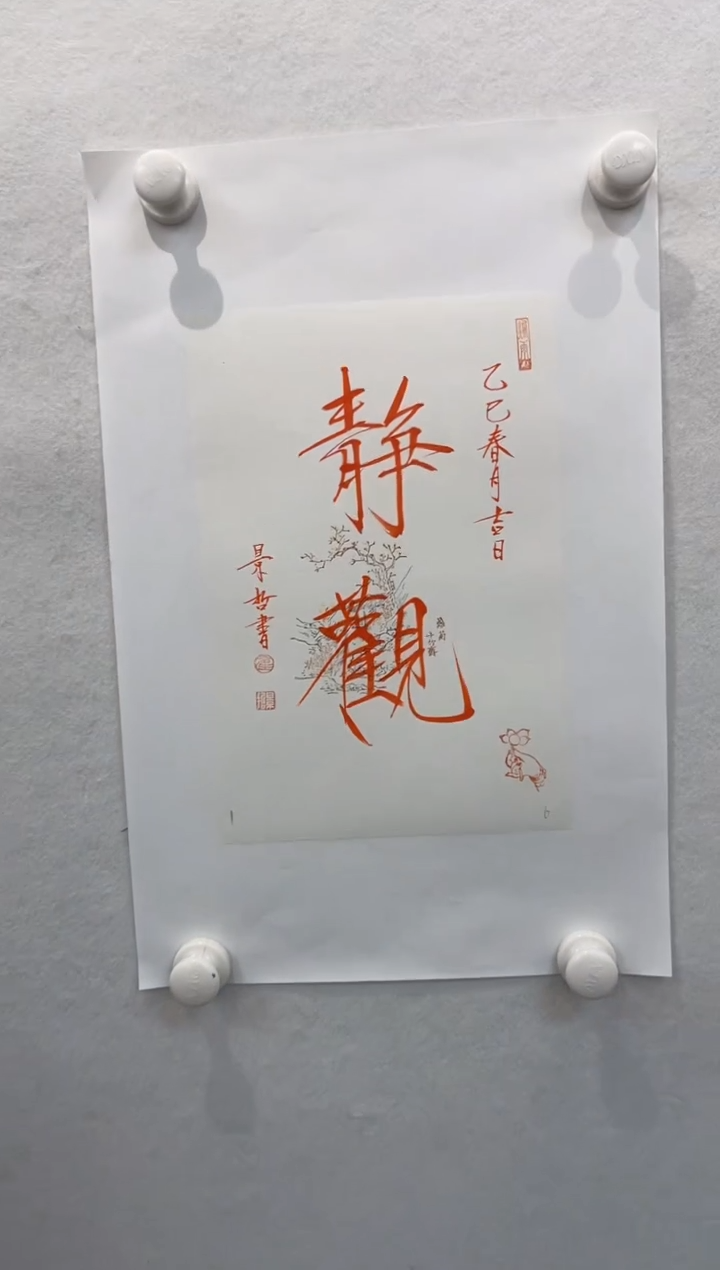 乙巳春月吉日
靜觀
景哲書